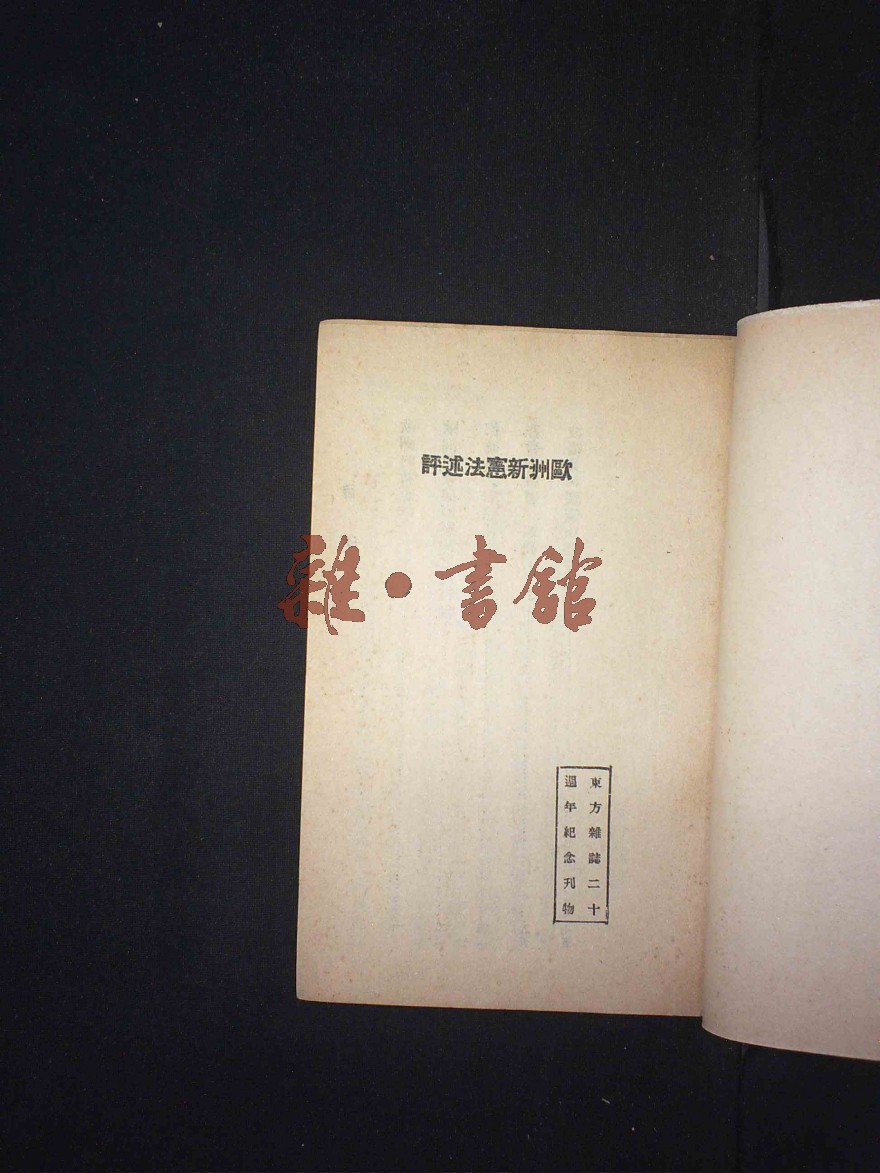 歐洲新憲法述評
雜·書館
東方雜誌二十
週年紀念刊物